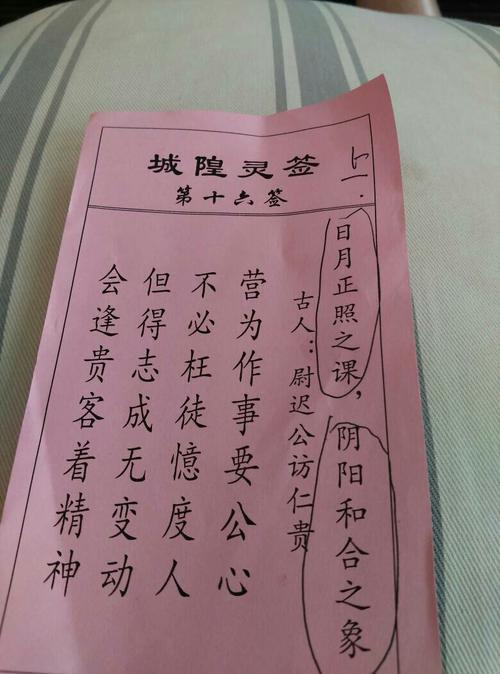 城隍灵签
第十六签
日月正照之课，阴阳和合之象
古人：尉迟公访仁贵
营为作事要公心
不必枉徒憶度人
但得志成无变动
会逢贵客着精神